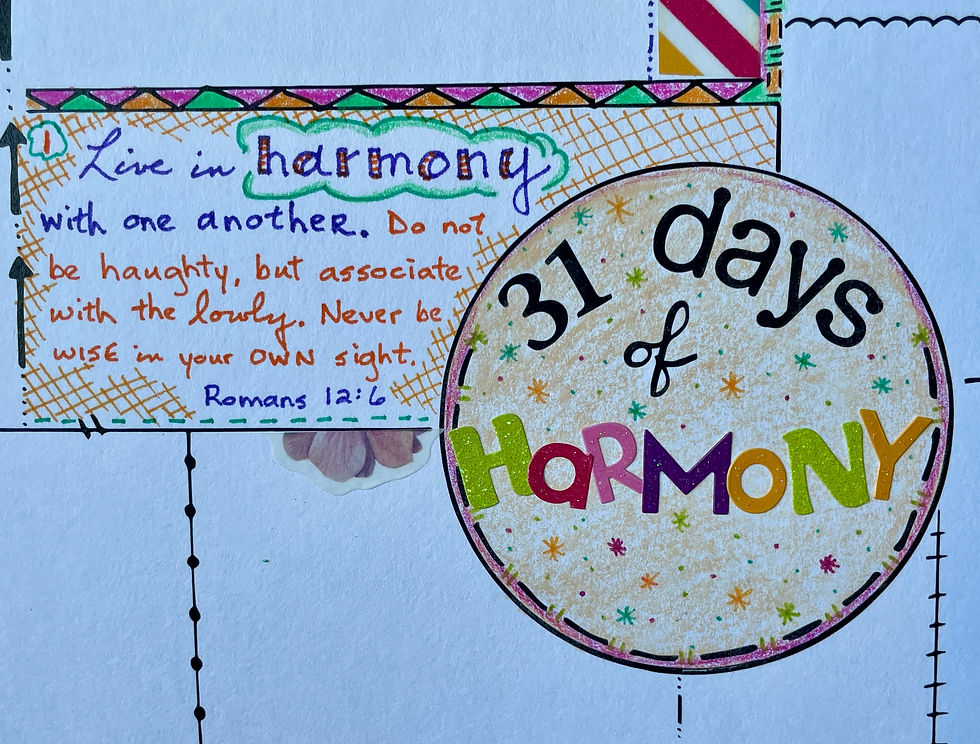 1
Live in harmony
with one another. Do not
be haughty, but associate
with the lowly. Never be
wise in your own sight.
Romans 12:6
31 days
of
HaRMONY